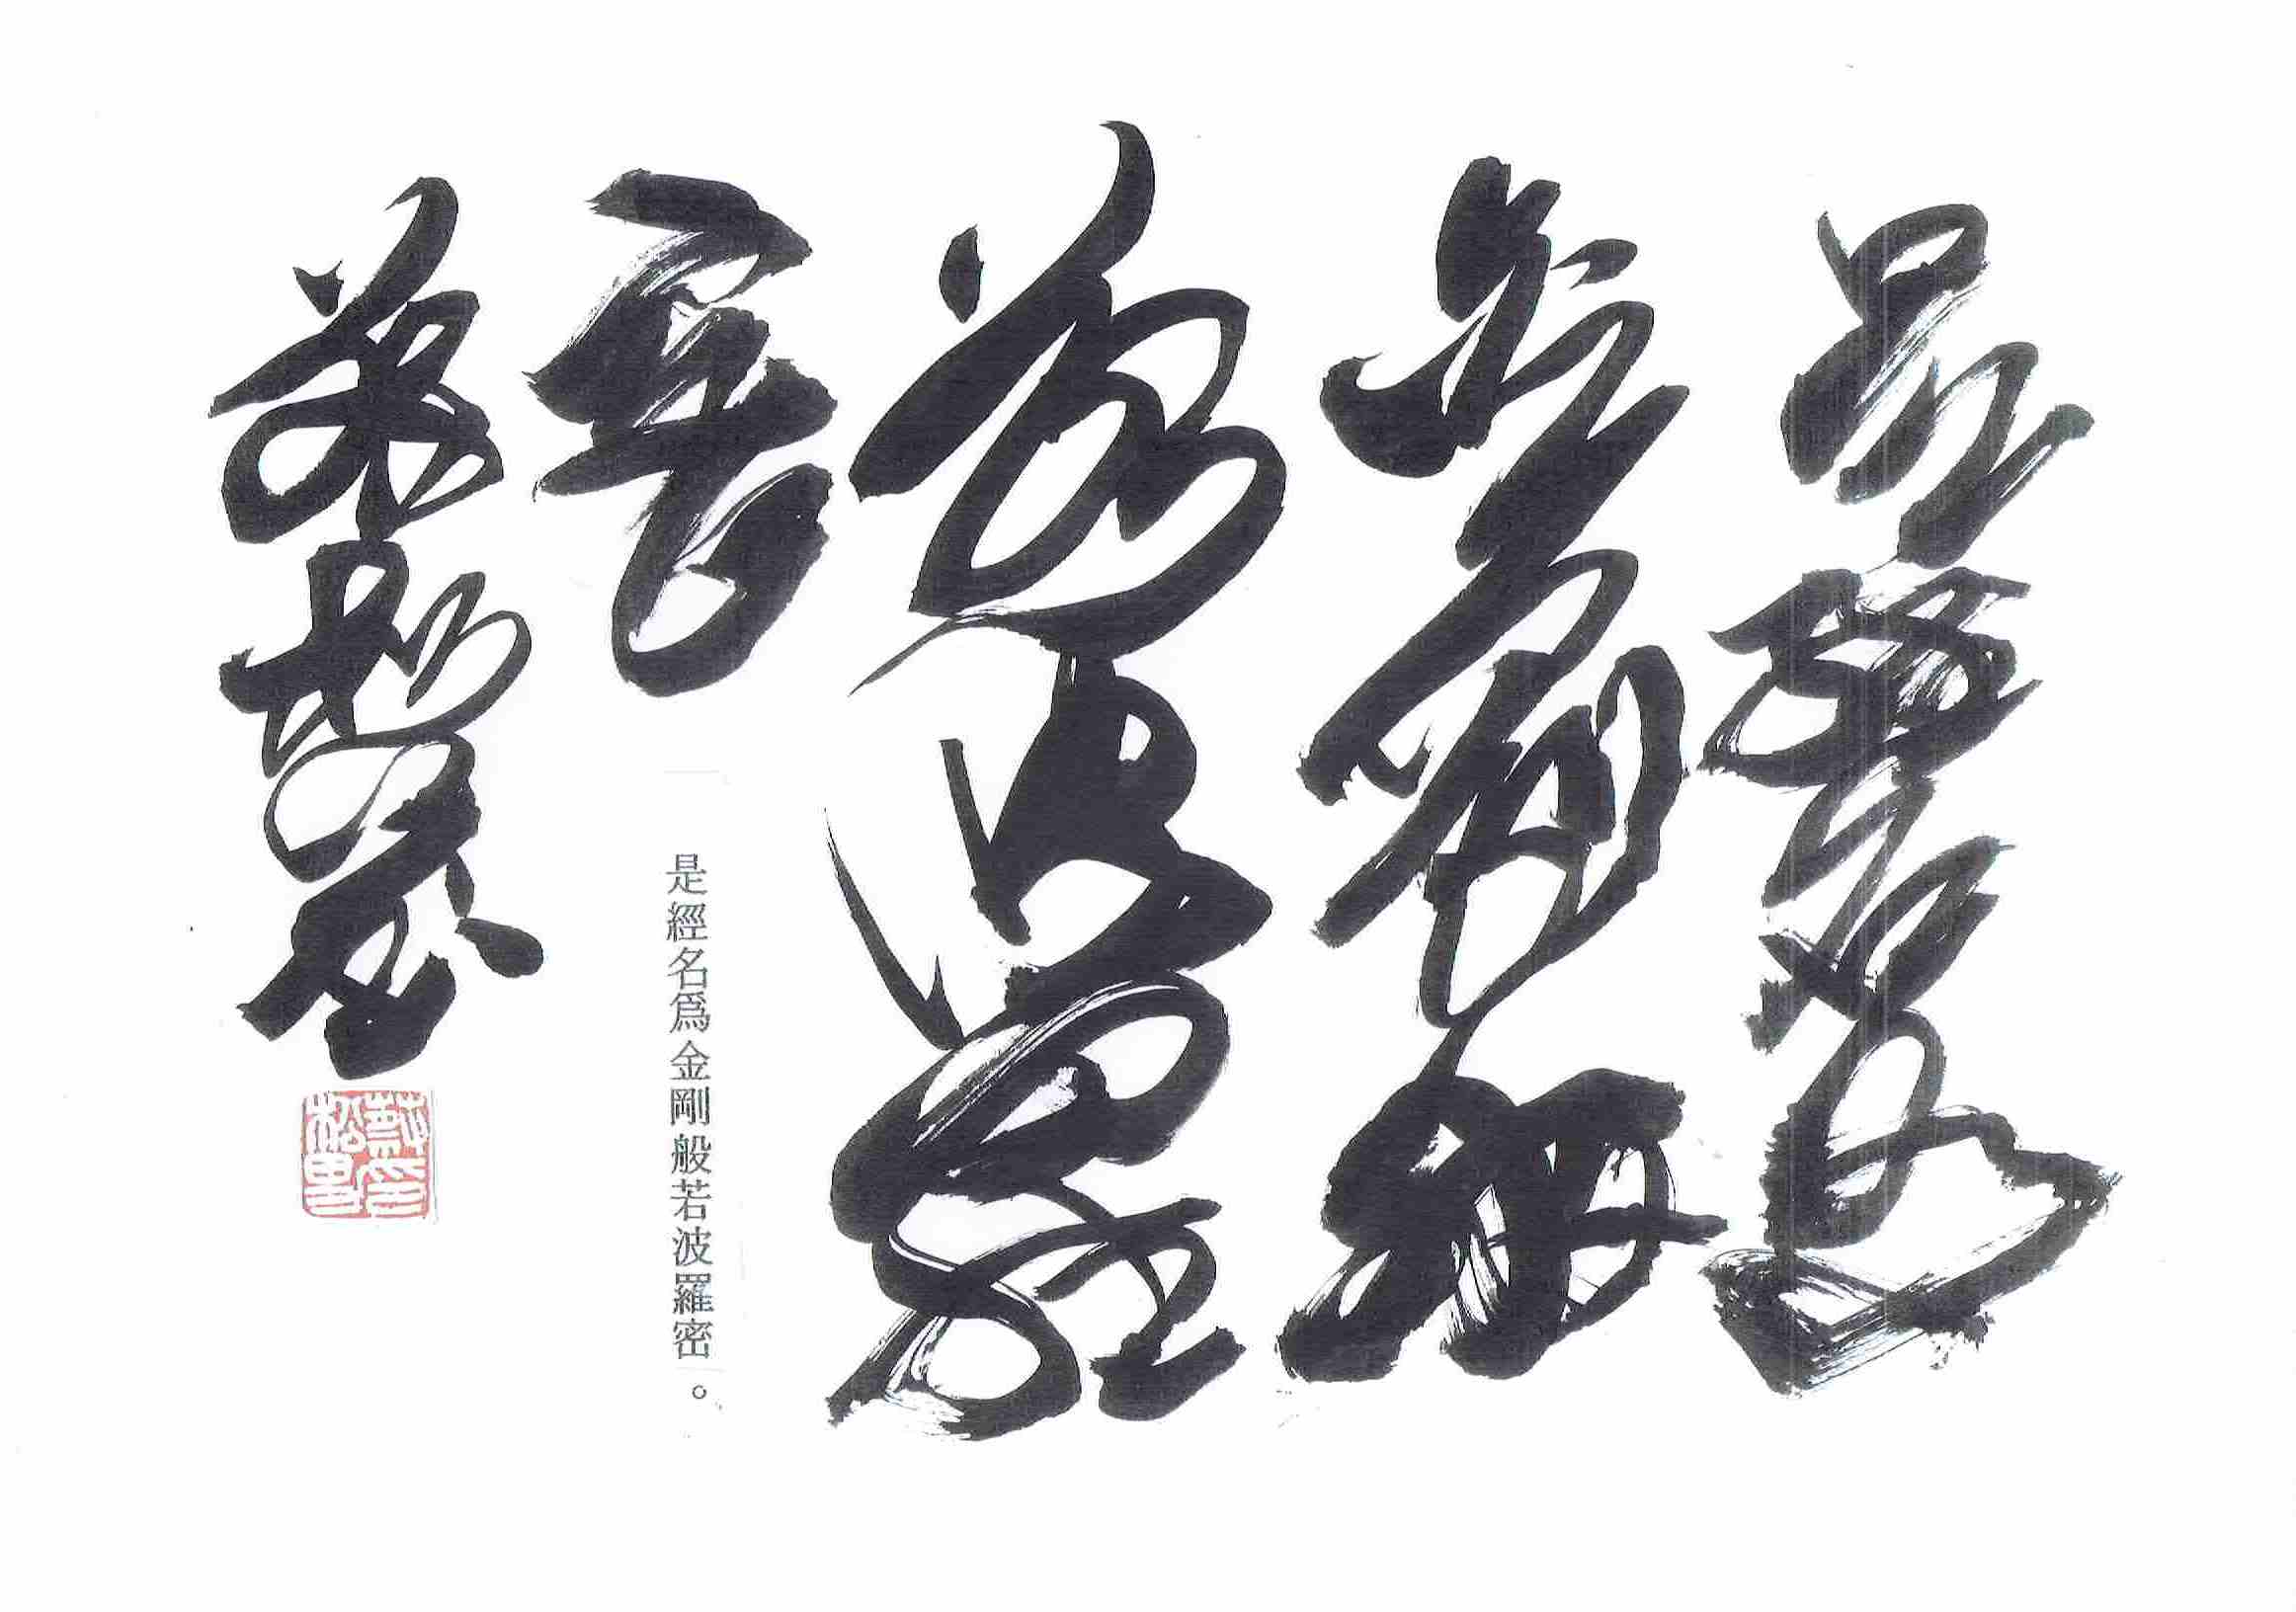 是經名為
金剛般
若波羅
密
是經名爲金剛般若波羅密。